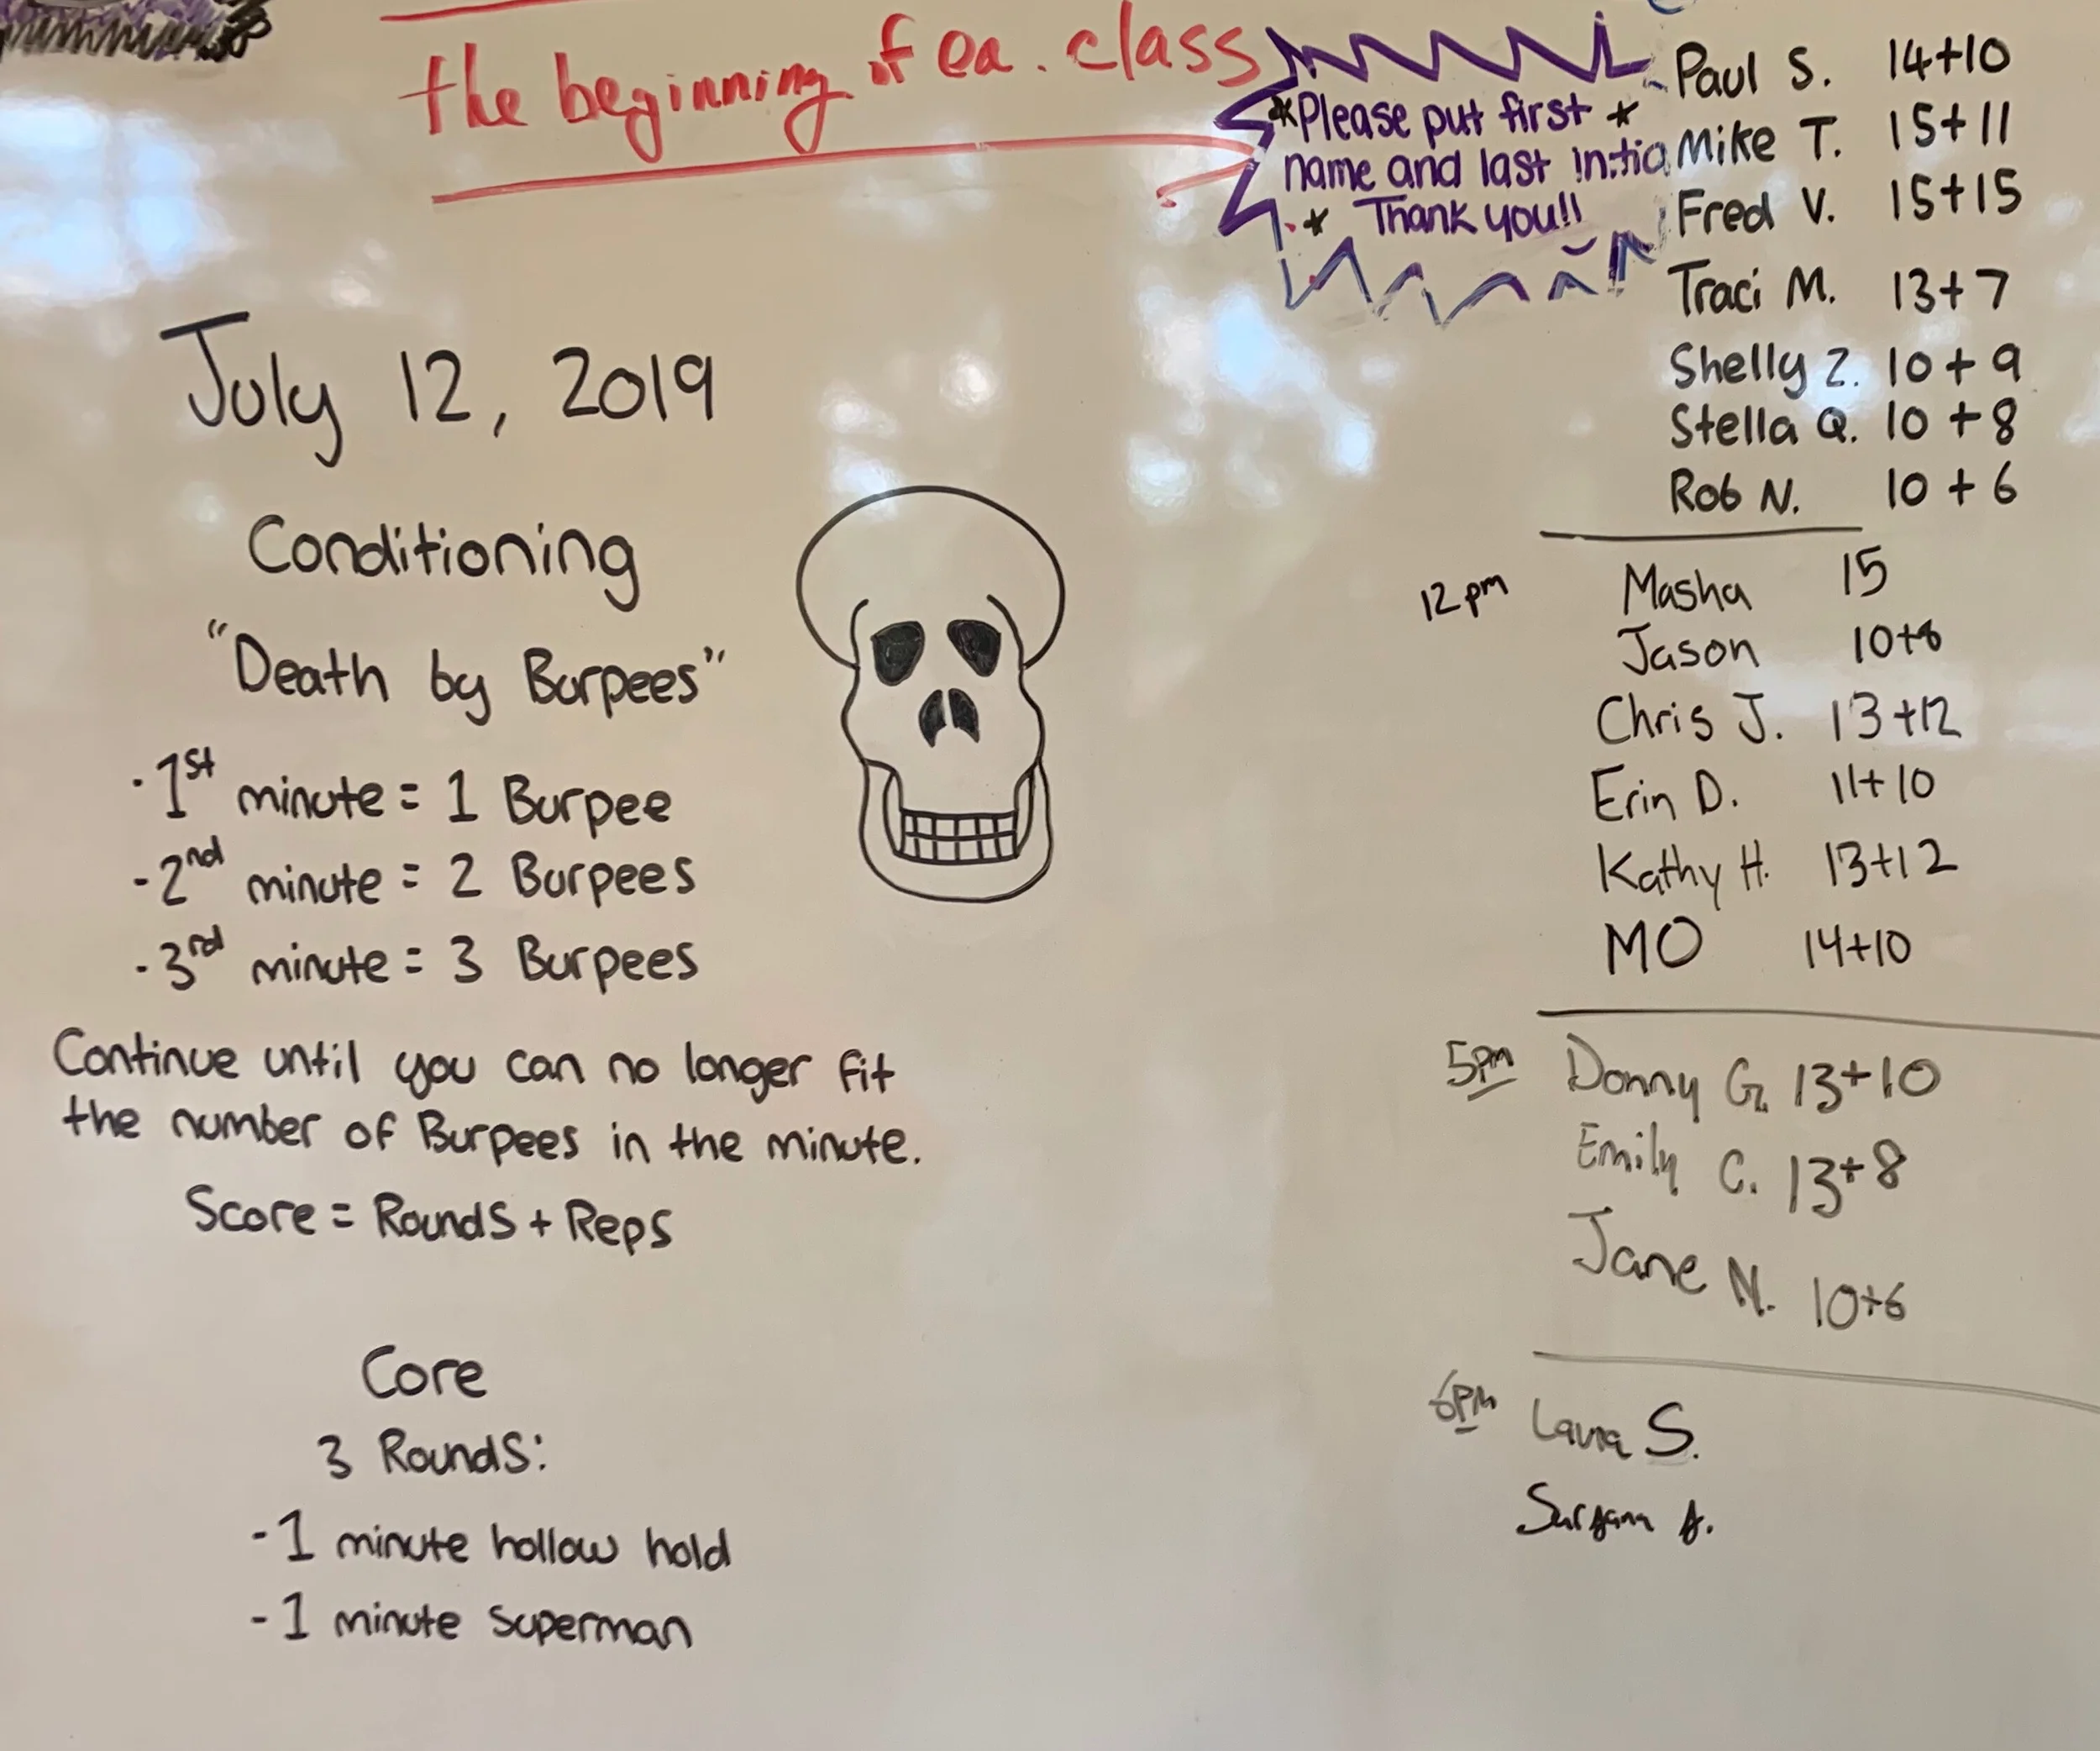 the beginning of ea. class
*Please put first *
name and last initia
* Thank you!!
July 12, 2019
Conditioning
"Death by Burpees"
-1st minute = 1 Burpee
-2nd minute = 2 Burpees
-3rd minute = 3 Burpees
Continue until you can no longer fit
the number of Burpees in the minute.
Score = Rounds + Reps
Core
3 Rounds:
-1 minute hollow hold
-1 minute superman
Paul S. 14+10
Mike T. 15+11
Fred V. 15+15
Traci M. 13+7
Shelly Z. 10+9
Stella Q. 10+8
Rob N. 10+6
12pm
Masha 15
Jason 10+8
Chris J. 13+12
Erin D. 11+10
Kathy H. 13+12
MO 14+10
5pm
Donny G. 13+10
Emily C. 13+8
Jane N. 10+6
6PM
Laura S.